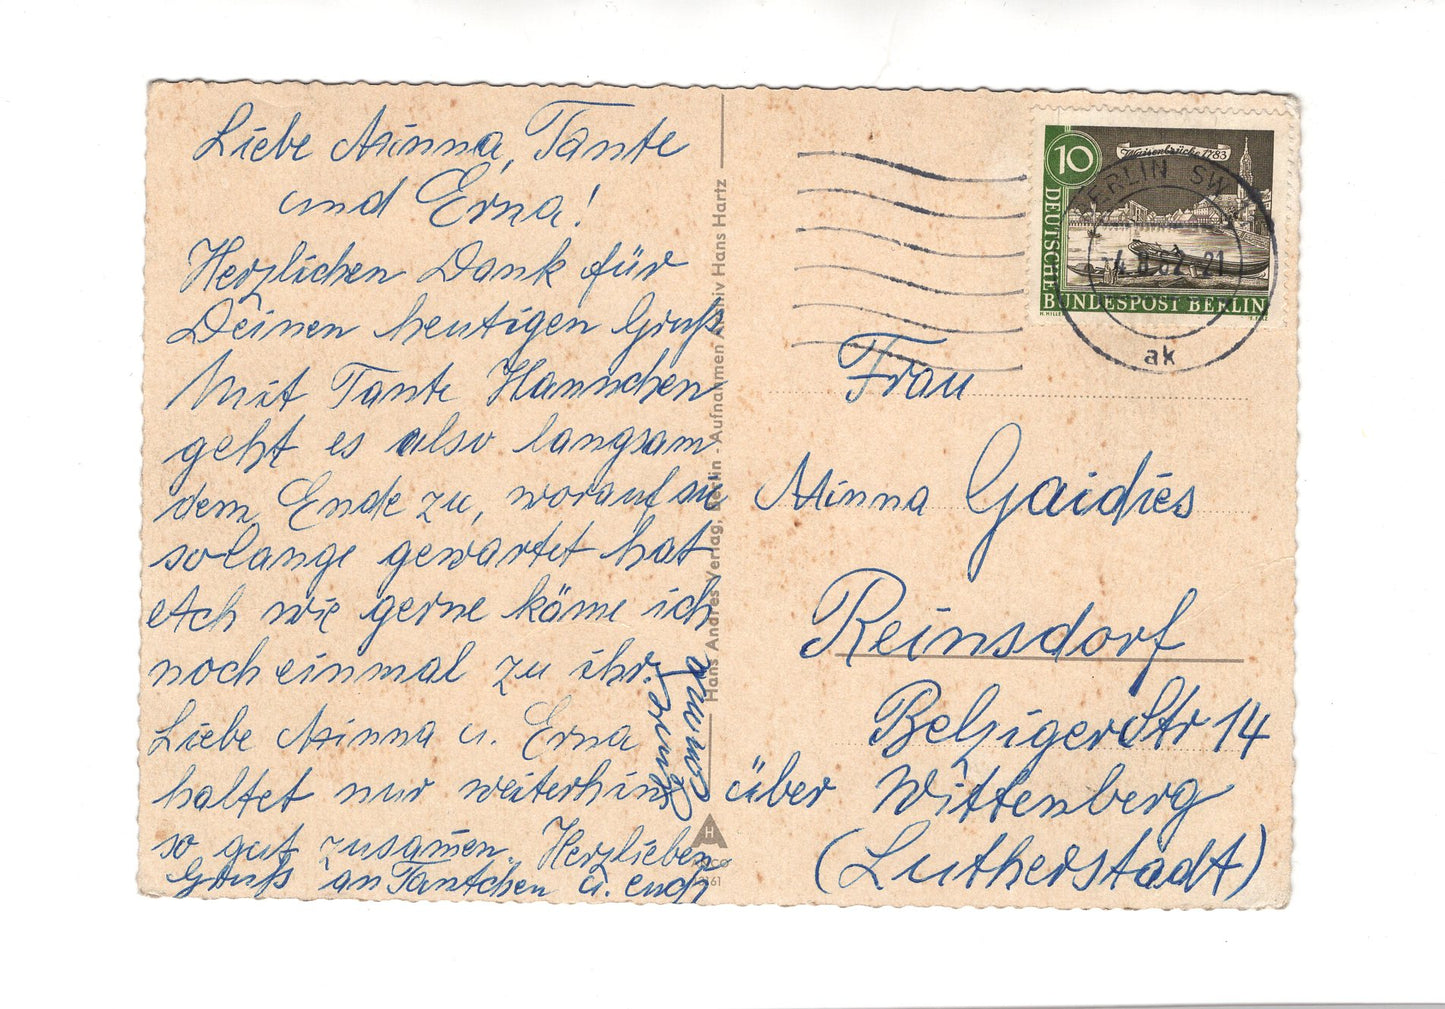 Liebe Minna, Tante
und Erna!
Herzlichen Dank für
Deinen heutigen Gruß
Mit Tante Hannchen
geht es also langsam
dem Ende zu, worauf sie
solange gewartet hat
Ach wie gerne käme ich
noch einmal zu ihr.
Liebe Minna u. Erna
haltet nur weiterhin
so gut zusamen. Herzlieben
Gruß an Tantchen u. euch
Hans Andres Verlag, Berlin - Aufnahmen Archiv Hans Hartz
H
ANCO
10
Waisenbrücke 1783
DEUTSCHE
BUNDESPOST BERLIN
BERLIN SW
62-21
ak
Frau
Minna Gaidies
Reinsdorf
Belziger Str 14
über Wittenberg
(Lutherstadt)